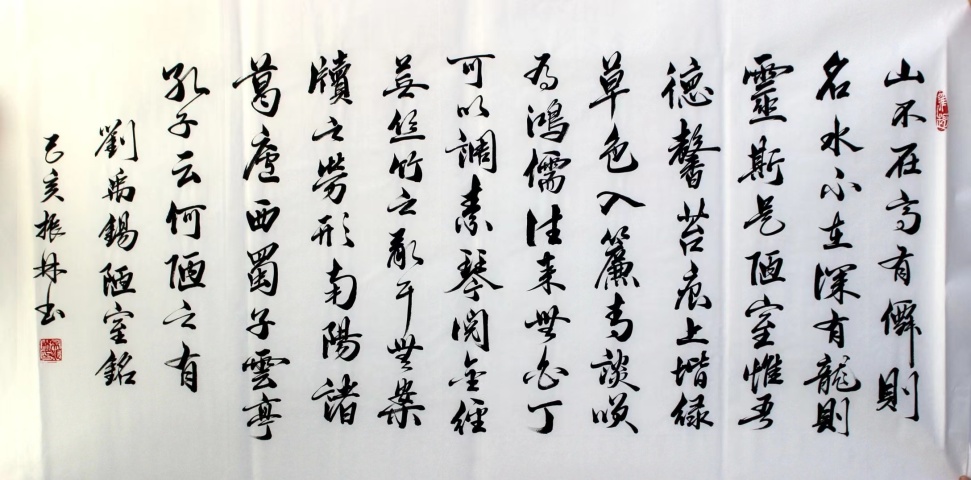 山不在高有僊則
名水不在深有龍則
靈斯是陋室惟吾
德馨苔痕上堦緑
草色入簾青談咲
為鴻儒往来無白丁
可以調素琴閱金經
無丝竹之亂耳無案
牘之勞形南陽諸
葛廬西蜀子雲亭
孔子云何陋之有
劉禹錫陋室銘
己亥振林书